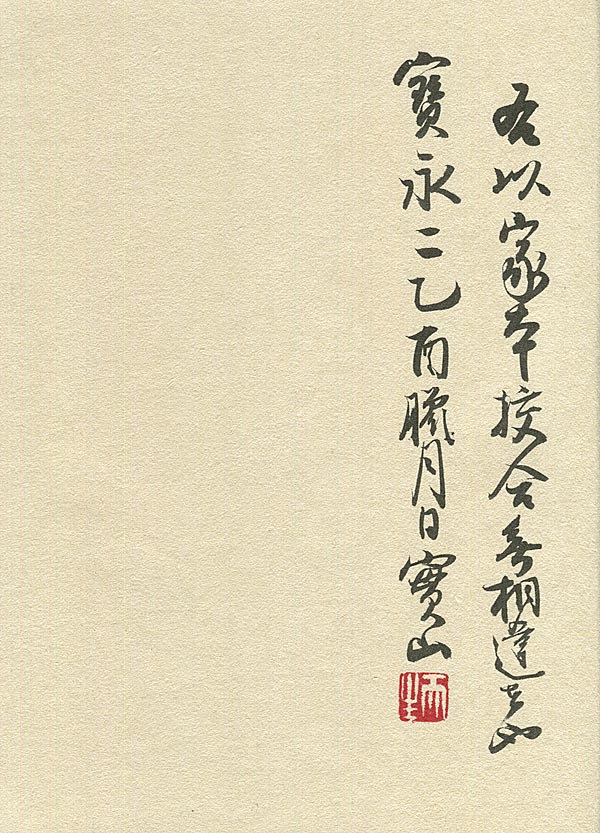 右以家本挍合無相違者也
寶永二乙酉臘月日實山